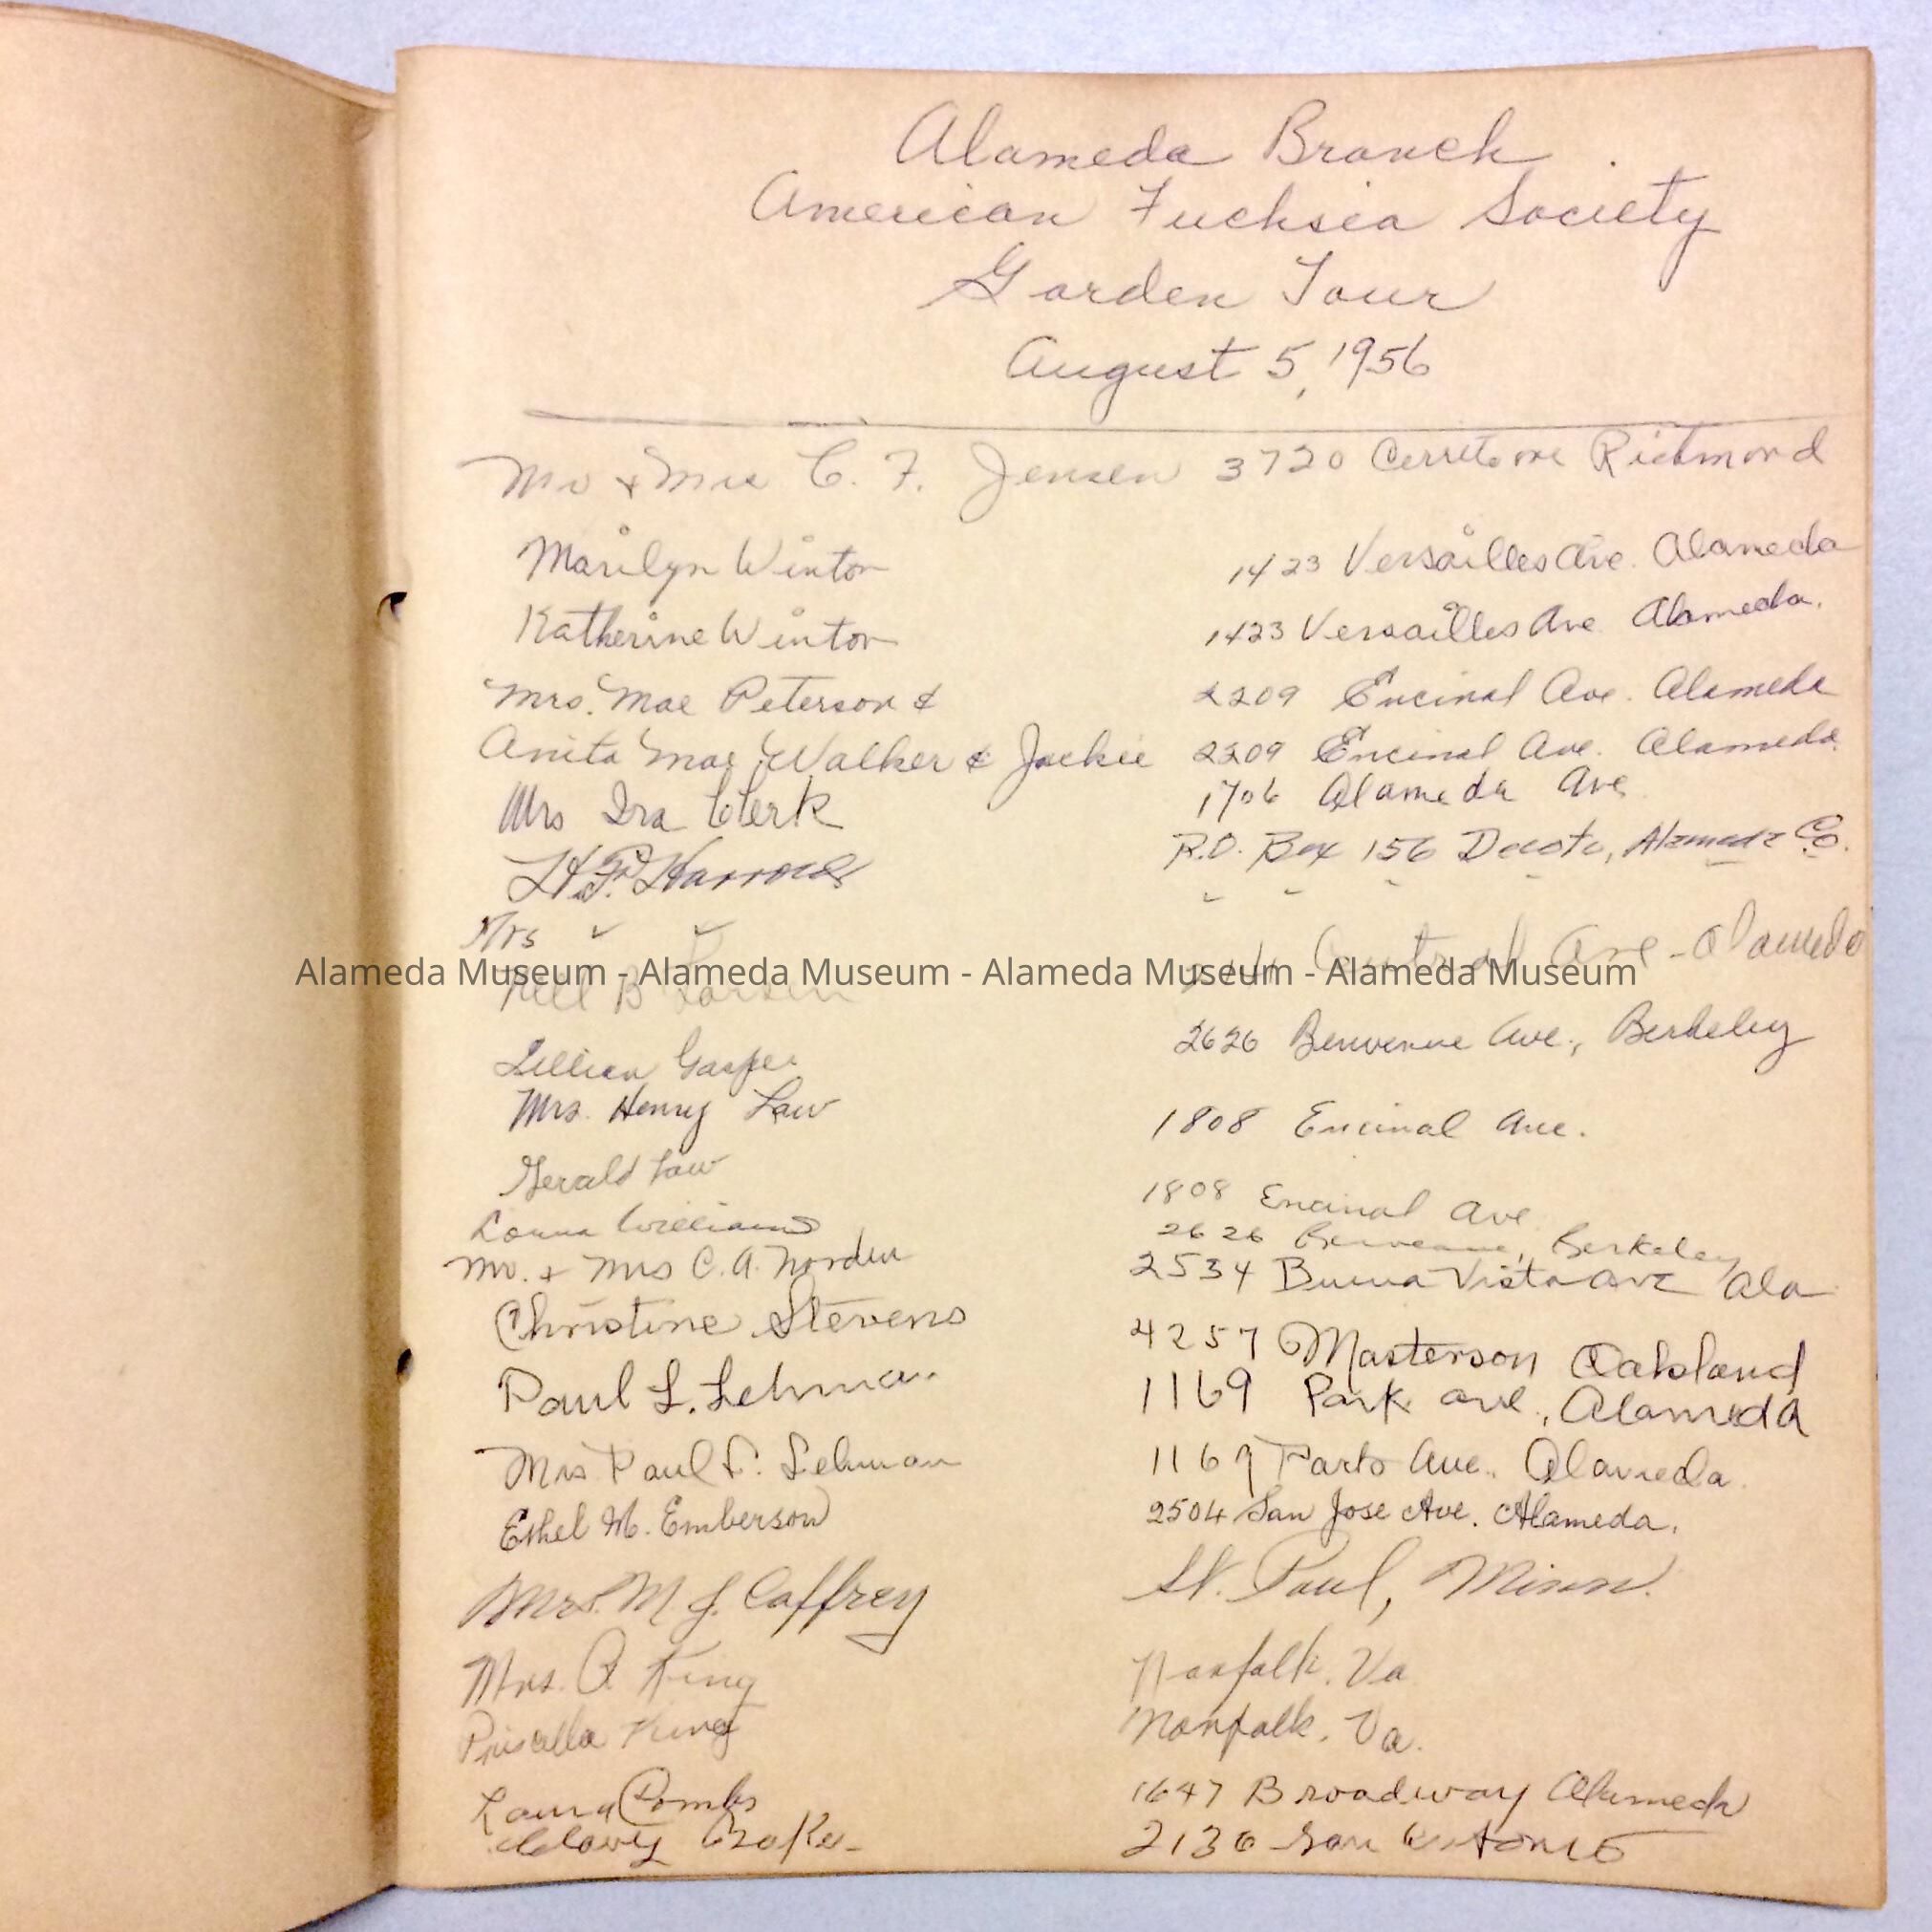 Alameda Branch
American Fuchsia Society
Garden Tour
August 5, 1956
Mr & Mrs C. F. Jensen 3720 Cerrito Ave Richmond
Marilyn Winton 1423 Versailles Ave. Alameda
Katherine Winton 1423 Versailles Ave Alameda.
Mrs. Mae Peterson & 2209 Encinal Ave. Alameda
Anita Mae Walker & Jackie 2209 Encinal Ave. Alameda
Mrs Ira Clerk 1706 Alameda Ave
H. F. P.O. Box 156 Decoto, Alameda Co.
Mrs " "
Alameda Museum - Alameda Museum - Alameda Museum - Alameda Museum
Nell B Larsen Central Ave - Alameda
Lillian 2626 Benvenue Ave., Berkeley
Mrs. Henry Law 1808 Encinal Ave.
Gerald Law 1808 Encinal Ave
Williams 2626 Benvenue, Berkeley
Mr. & Mrs C. A. Norden 2534 Buena Vista Ave Ala
Christine Stevens 4257 Masterson Oakland
Paul L. Lehman 1169 Park ave., Alameda
Mrs Paul L. Lehman 1169 Park Ave., Alameda.
Ethel M. Emberson 2504 San Jose Ave. Alameda.
Mrs. M. J. Caffrey St. Paul, Minn.
Mrs. A. King Norfolk, Va
Priscilla King Norfolk, Va.
Laura Combs 1647 Broadway Alameda
2136 San Antonio